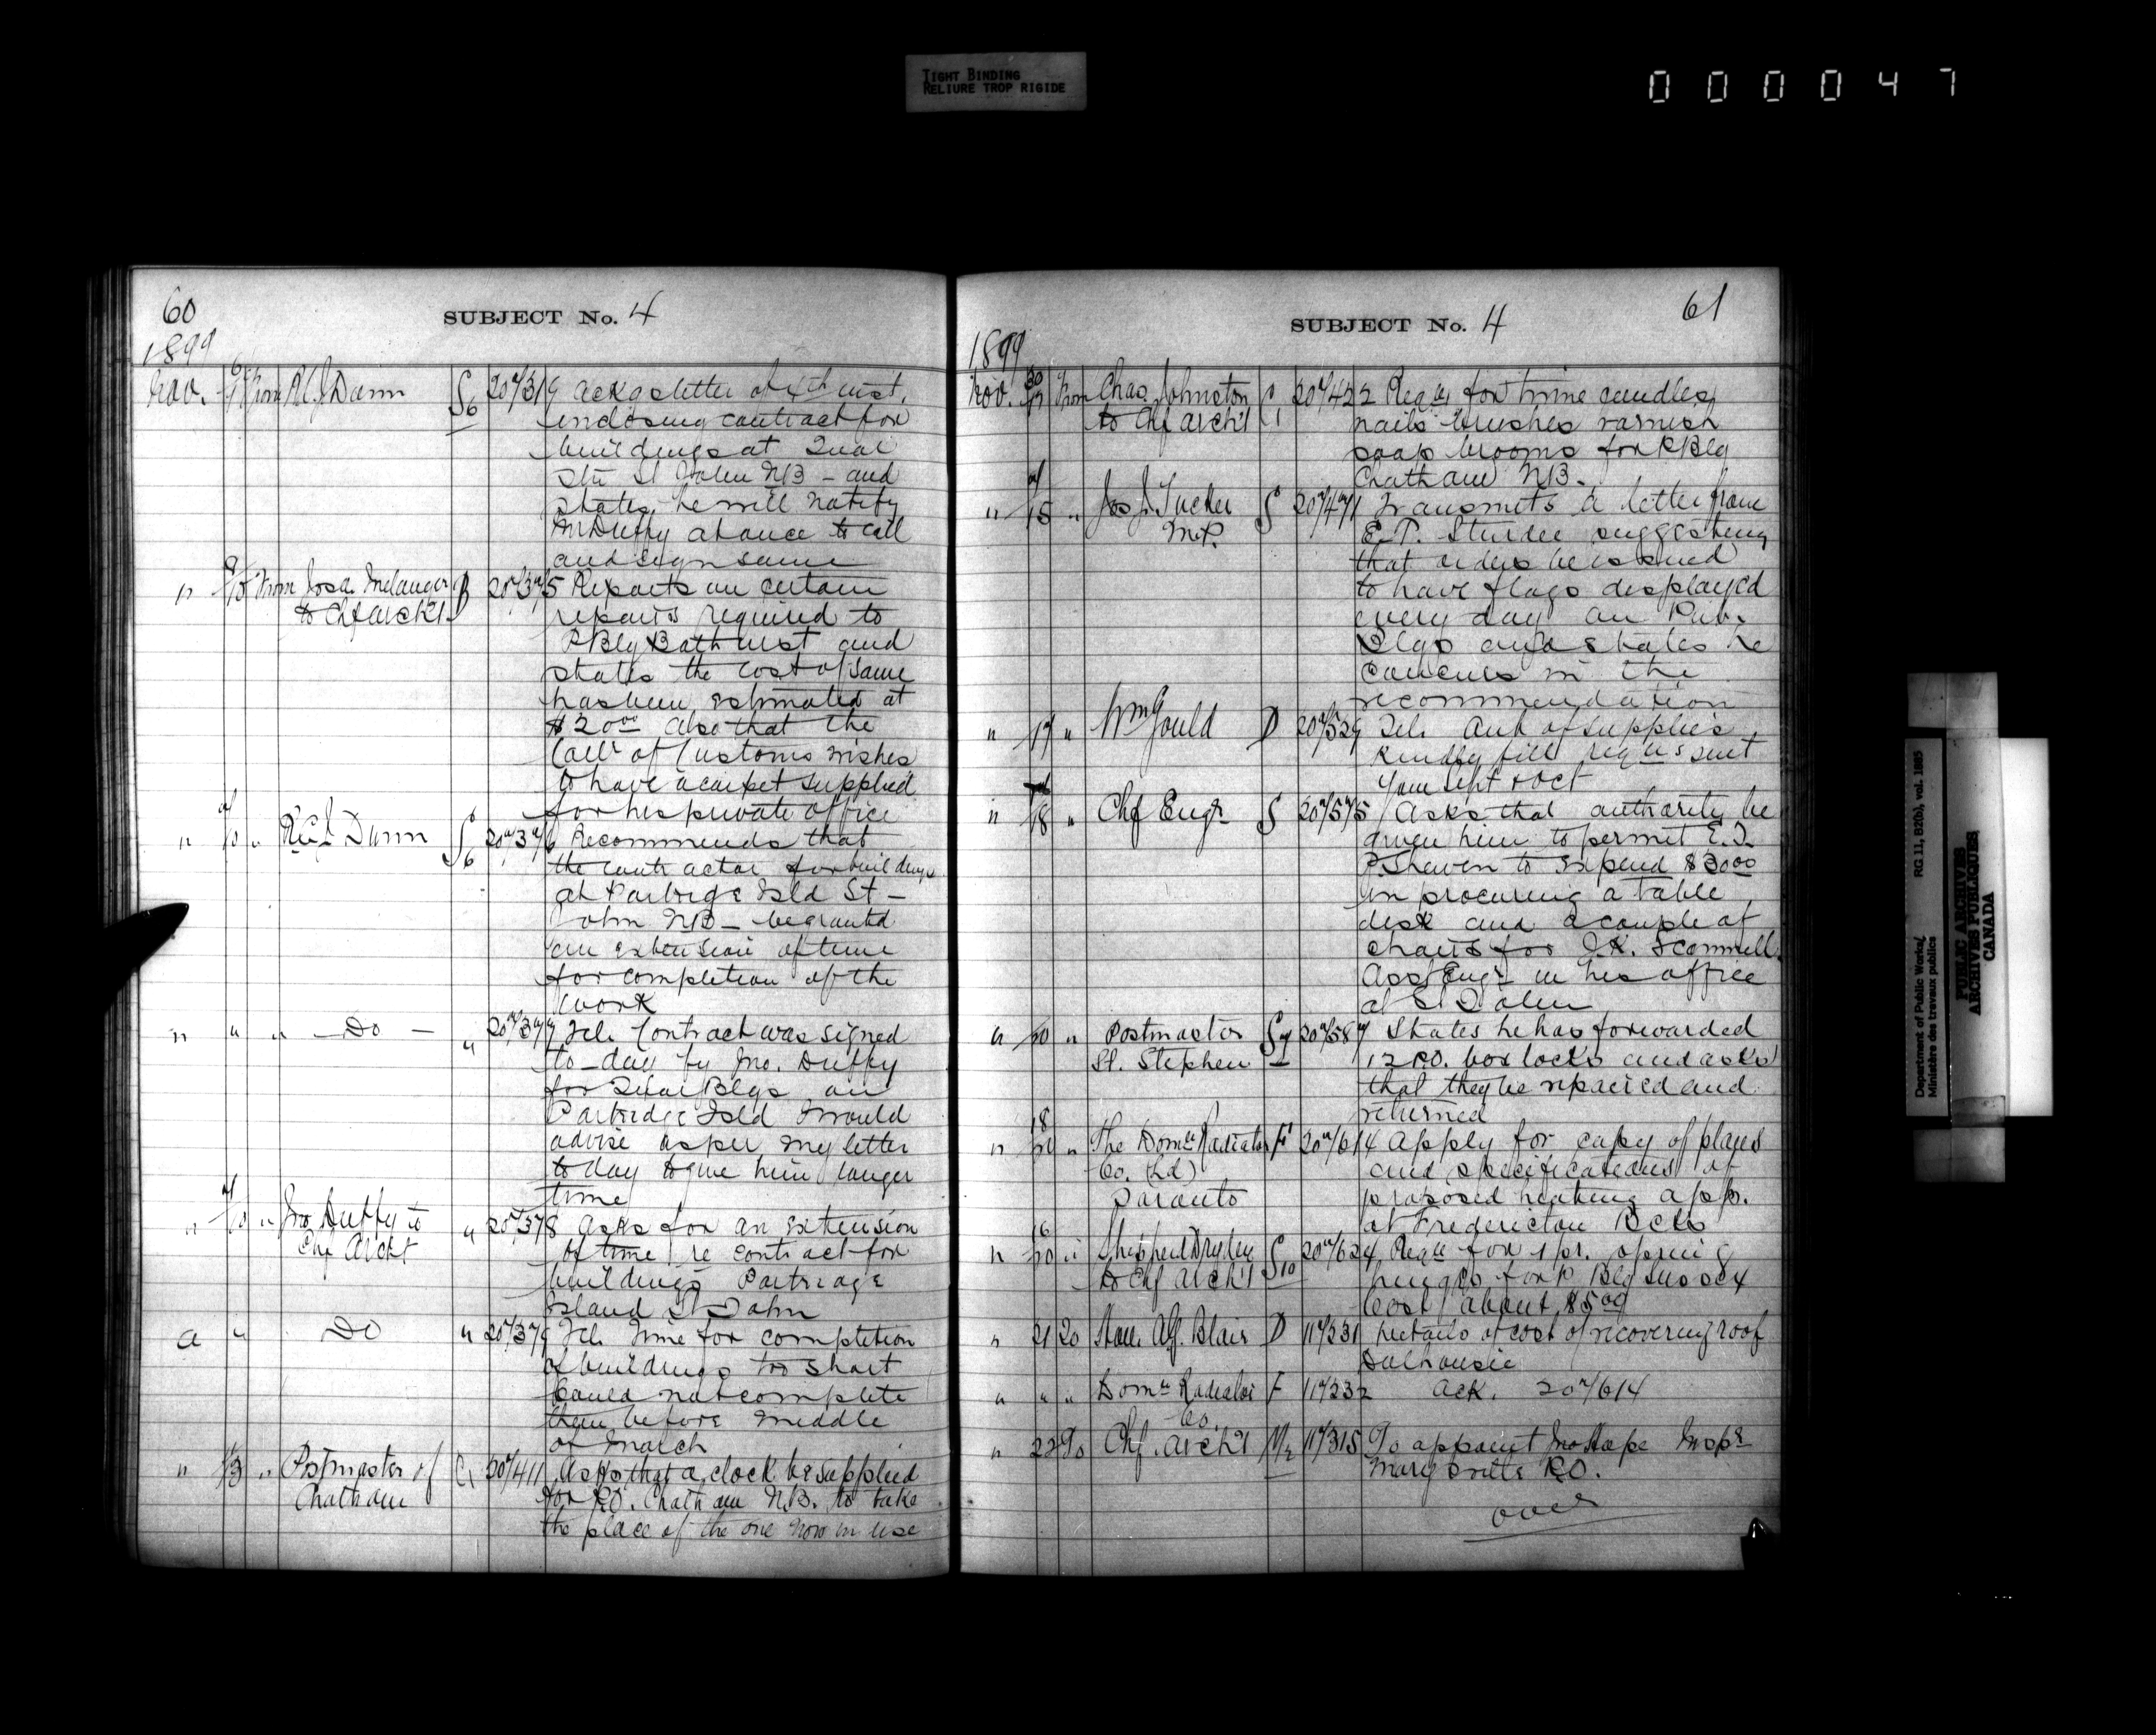 TIGHT BINDING
RELIURE TROP RIGIDE
0 0 0 0 4 7
60
SUBJECT No. 4
1899
Nov. From R.C.J. Dunn S6 Acks letter of 4th inst.
enclosing contract for
buildings at Quar
Stn St John NB – and
states he will notify
Mr Duffy at once to call
and sign same
" From Jos. A. Melanger B Reports on certain
to Chf Archt
repairs required to
P Blg Bathurst and
states the cost of same
has been estimated at
$20.00 also that the
Coll. of Customs wishes
to have a carpet supplied
for his private office
" " R.C.J. Dunn S6 Recommends that
the contractor for buildings
at Partridge Isld St –
John NB – be granted
an extension of time
for completion of the
work
" " " – Do – " Tel. Contract was signed
to-day by Jno. Duffy
for Blgs on
Partridge Isld I would
advise as per my letter
to day to give him longer
time
" " Jno Duffy to " Asks for an extension
Chf Archt of time re contract for
buildings Partridge
Island St John
" " Do " Tel. Time for completion
of buildings too short
Could not complete
them before middle
of March
" 13 " Postmaster of C1 Asks that a clock be supplied
Chatham for P.O. Chatham N.B. to take
the place of the one now in use
SUBJECT No. 4
61
1899
Nov. From Chas. Johnston Reqn for twine candles
to Chf Archt nails brushes varnish
soap brooms for P Blg
Chatham NB.
" 15 " Jos J. Tucker S Transmits a letter from
M.P. E.T. Sturdee suggesting
that orders be issued
to have flags displayed
every day on Pub.
Blgs and states he
concurs in the
recommendation
" 17 " Wm Gould D Tel.
Kindly fill reqns sent
you Sept & Oct
" 18 " Chf Engr S Asks that authority be
given him to permit E.T.
P. Shewen to expend $30.00
in procuring a table
desk and a couple of
chairs for J.K. Scammell
Asst Engr in his office
at St John
" 20 " Postmaster S7 States he has forwarded
St. Stephen 12 P.O. box locks and asks
that they be repaired and
returned
18
" " The Domn Radiator F Apply for copy of plans
Co. (Ld) and specifications of
Toronto proposed heating app.
at Fredericton Bcks
16
" 20 " Sheppard Dryden S10 Reqn for 1 pr. spring
to Chf Archt hinges for P Blg Sussex
Cost about $5.00
" 21 20 Hon. A.G. Blair D Details of cost of recovering roof
Dalhousie
" " " Domn Radiator F Ack. 20"/614
Co.
" 22 To Chf. Archt M2 To appoint Jno Hope Inspr
Marysville P.O.
over
Department of Public Works/
Ministère des travaux publics
RG 11, B2(b), vol. 1885
PUBLIC ARCHIVES
ARCHIVES PUBLIQUES
CANADA